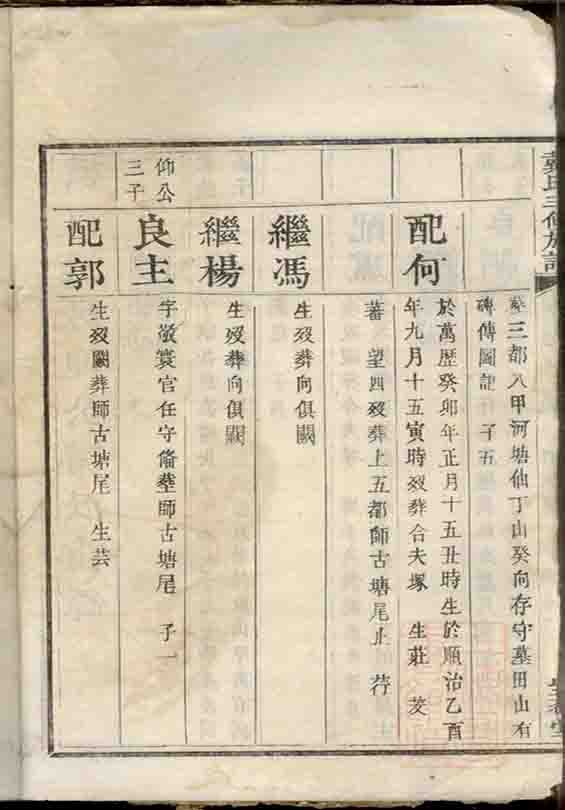 三都八甲河塘仙丁山癸向存守墓田山有
碑傳圖記行 子五
配何
於萬歷癸卯年正月十五丑時生於順治乙酉
年九月十五寅時歿葬合夫塚 生莊 茇
蕃 望四歿葬上五都師古塘尾止 荇
繼馮
生歿葬向俱闕
繼楊
生歿葬向俱闕
仰公
三子
良主
字儆寰官任守備塟師古塘尾 子一
配郭
生歿闕葬師古塘尾 生芸